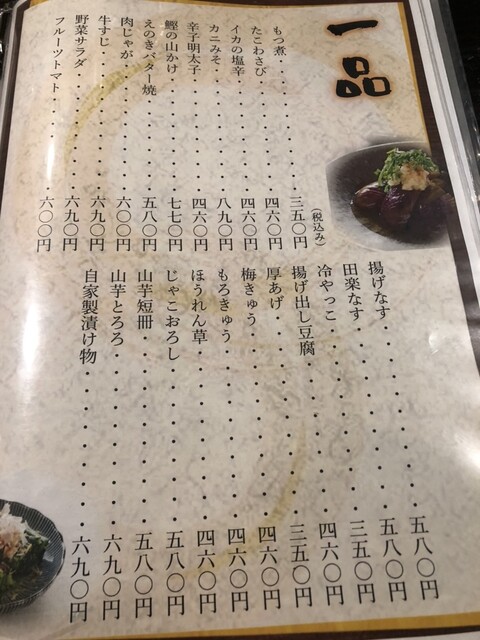 一品
(税込み)
もつ煮・・・・・・・・三五〇円
たこわさび・・・・・・四六〇円
イカの塩辛・・・・・・四六〇円
カニみそ・・・・・・・八九〇円
辛子明太子・・・・・・四六〇円
鰹の山かけ・・・・・・七七〇円
えのきバター焼・・・・五八〇円
肉じゃが・・・・・・・六〇〇円
牛すじ・・・・・・・・六九〇円
野菜サラダ・・・・・・六九〇円
フルーツトマト・・・・六〇〇円
揚げなす・・・・・・・・五八〇円
田楽なす・・・・・・・・五八〇円
冷やっこ・・・・・・・・三五〇円
揚げ出し豆腐・・・・・・四六〇円
厚あげ・・・・・・・・・三五〇円
梅きゅう・・・・・・・・四六〇円
もろきゅう・・・・・・・四六〇円
ほうれん草・・・・・・・四六〇円
じゃこおろし・・・・・・五八〇円
山芋短冊・・・・・・・・五八〇円
山芋とろろ・・・・・・・六九〇円
自家製漬け物・・・・・・六九〇円